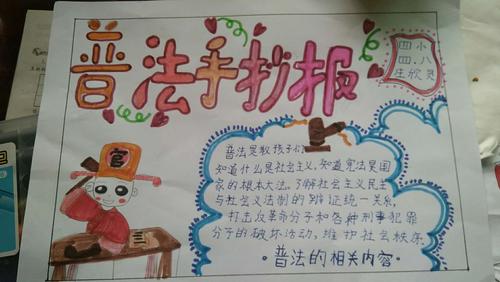 普法手抄报
四小
四.八
庄欣灵
官
普法是教孩子们
知道什么是社会主义,知道宪法是国
家的根本大法。了解社会主义民主
与社会主义法制的辩证统一关系,
打击反革命分子和各种刑事犯罪
分子的破坏活动,维护社会秩序
·普法的相关内容·